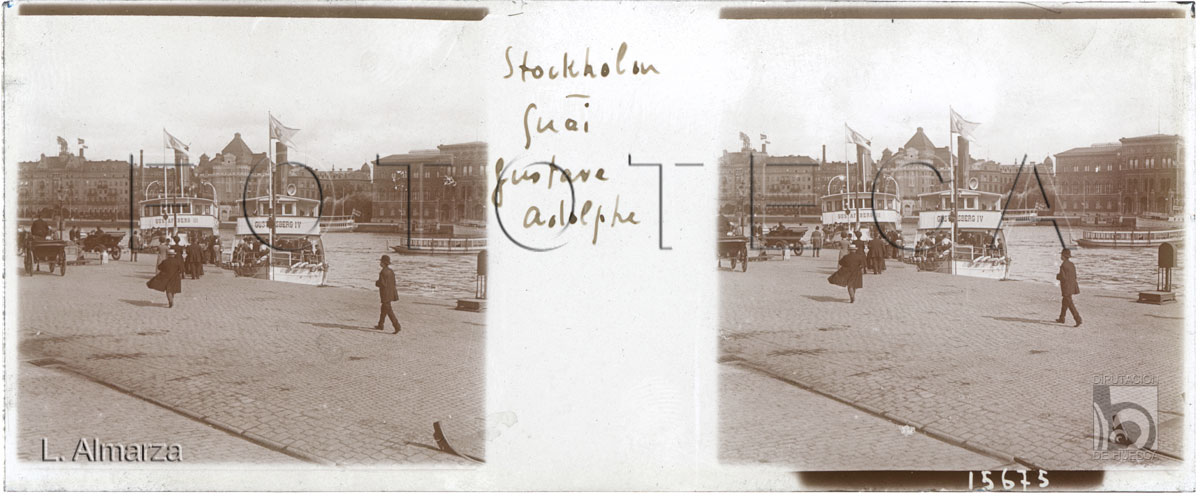 Stockholm
Quai
Gustave
Adolphe
FOTOTECA
GUSTAFSBERG IV
GUSTAFSBERG IV
L. Almarza
DIPUTACIÓ
DE HUESCA
15675